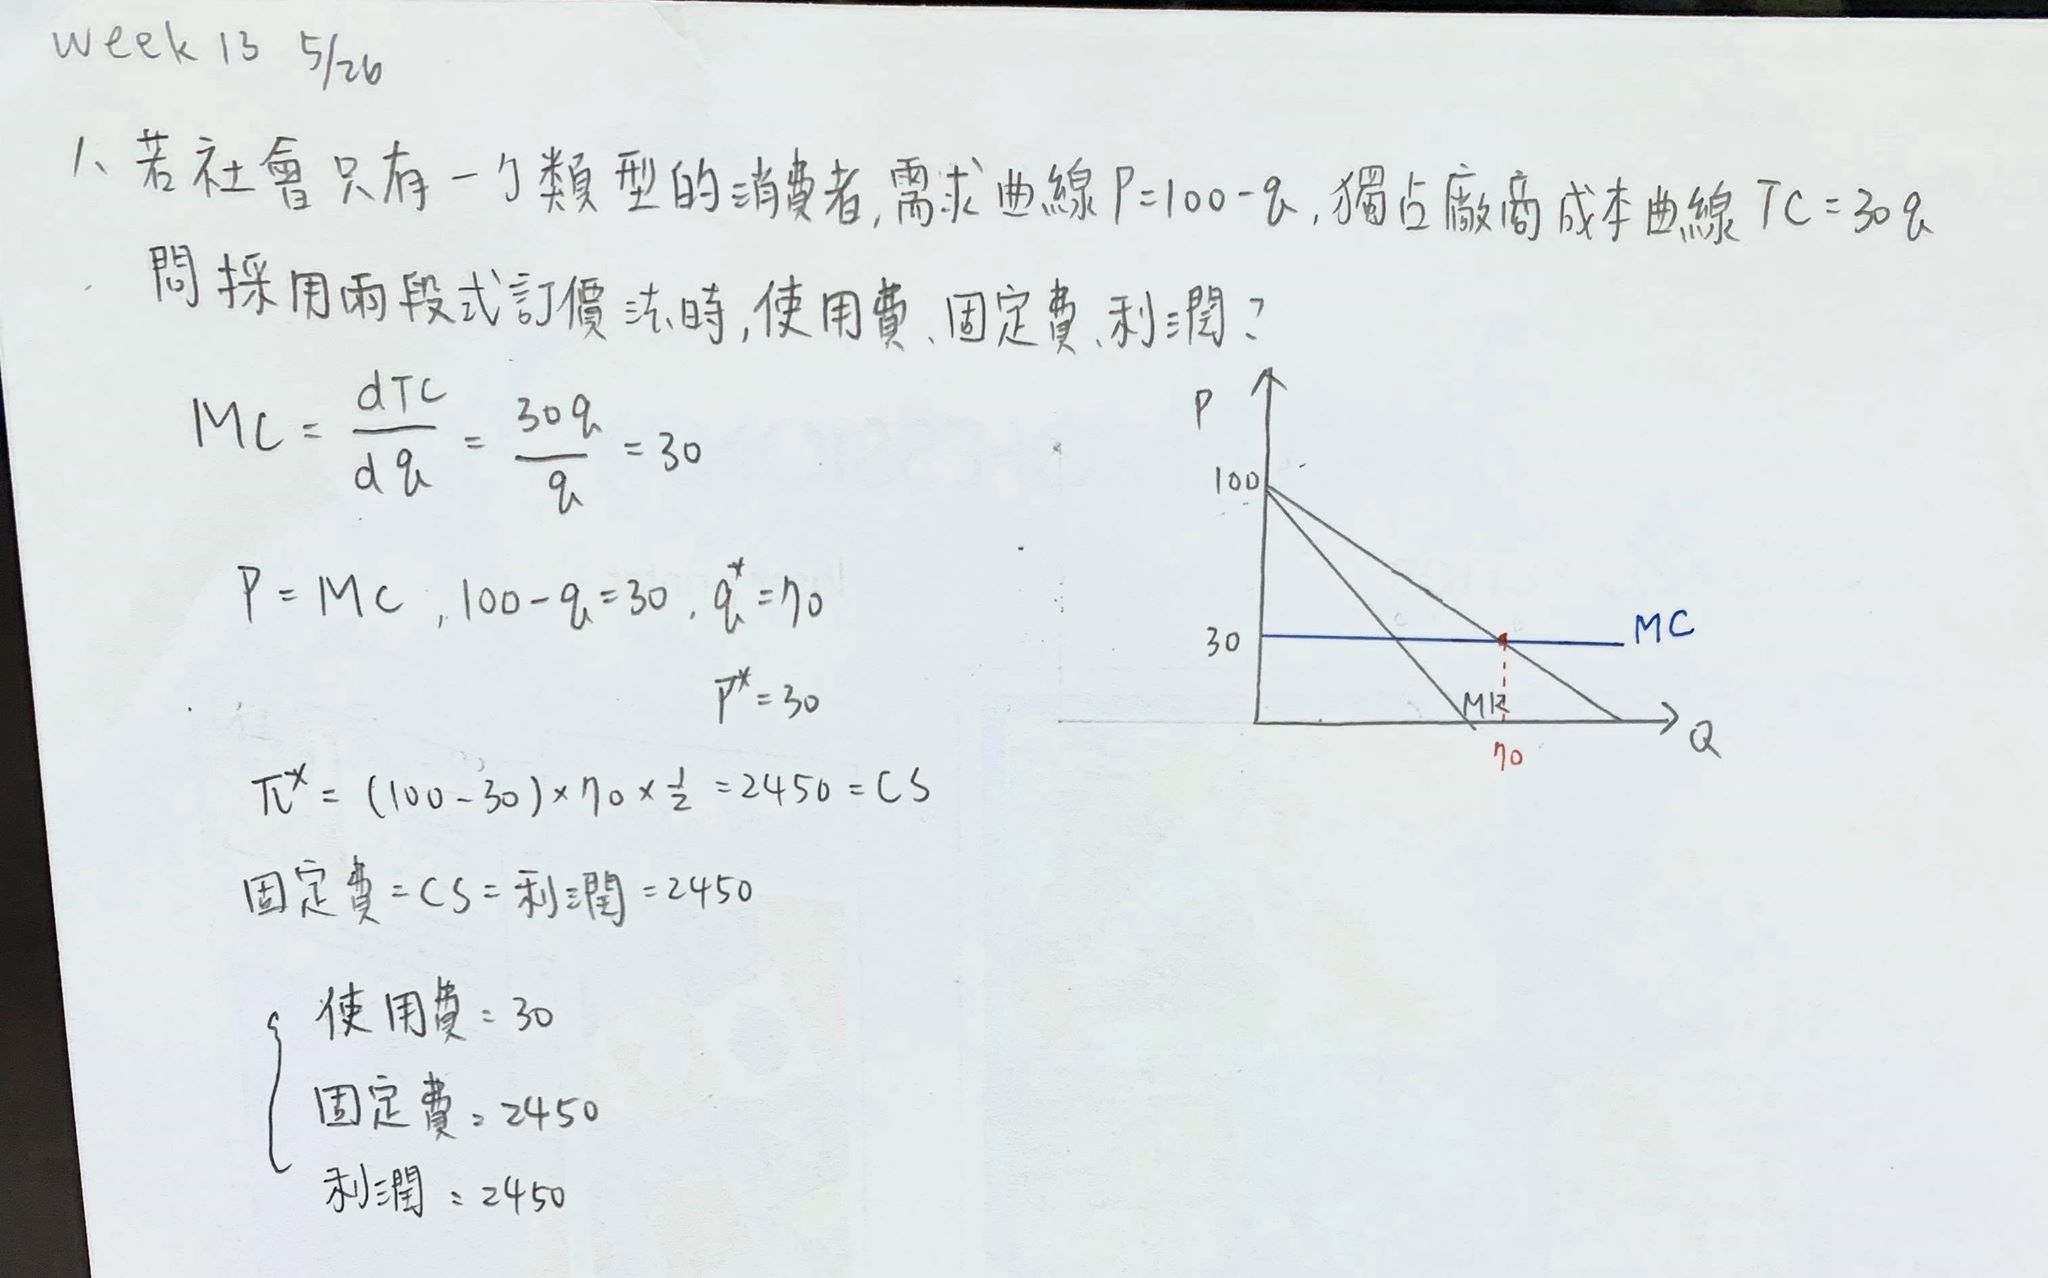 week 13 5/26
1、若社會只有一个類型的消費者,需求曲線P=100-q,獨占廠商成本曲線TC=30q
問採用兩段式訂價法時,使用費、固定費、利潤?
MC = dTC/dq = 30q/q = 30
P = MC , 100-q=30 , q*=70
P*=30
π* = (100-30)×70×1/2 = 2450 = CS
固定費=CS=利潤=2450
使用費=30
固定費=2450
利潤=2450
P
100
30
MC
MR
70
Q